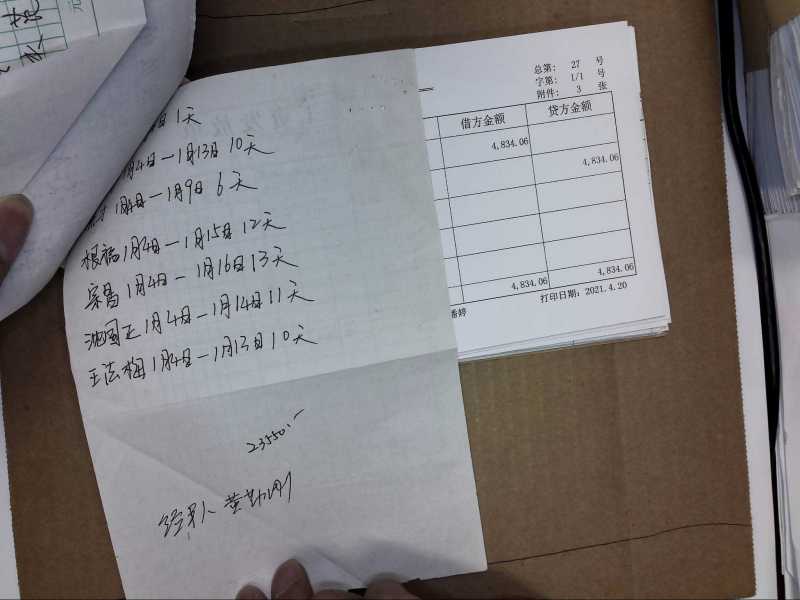 日1天
月4日一1月13日 10天
1月4日一1月9日 6天
根福1月4日一1月15日 12天
宗昌1月4日一1月16日 13天
沈国正1月4日一1月14日 11天
王法梅1月4日一1月13日 10天
23550.-
经手人 黄勤刚
总第: 27 号
字第: 1/1 号
附件: 3 张
借方金额 贷方金额
4,834.06
4,834.06
4,834.06 4,834.06
婷 打印日期: 2021.4.20